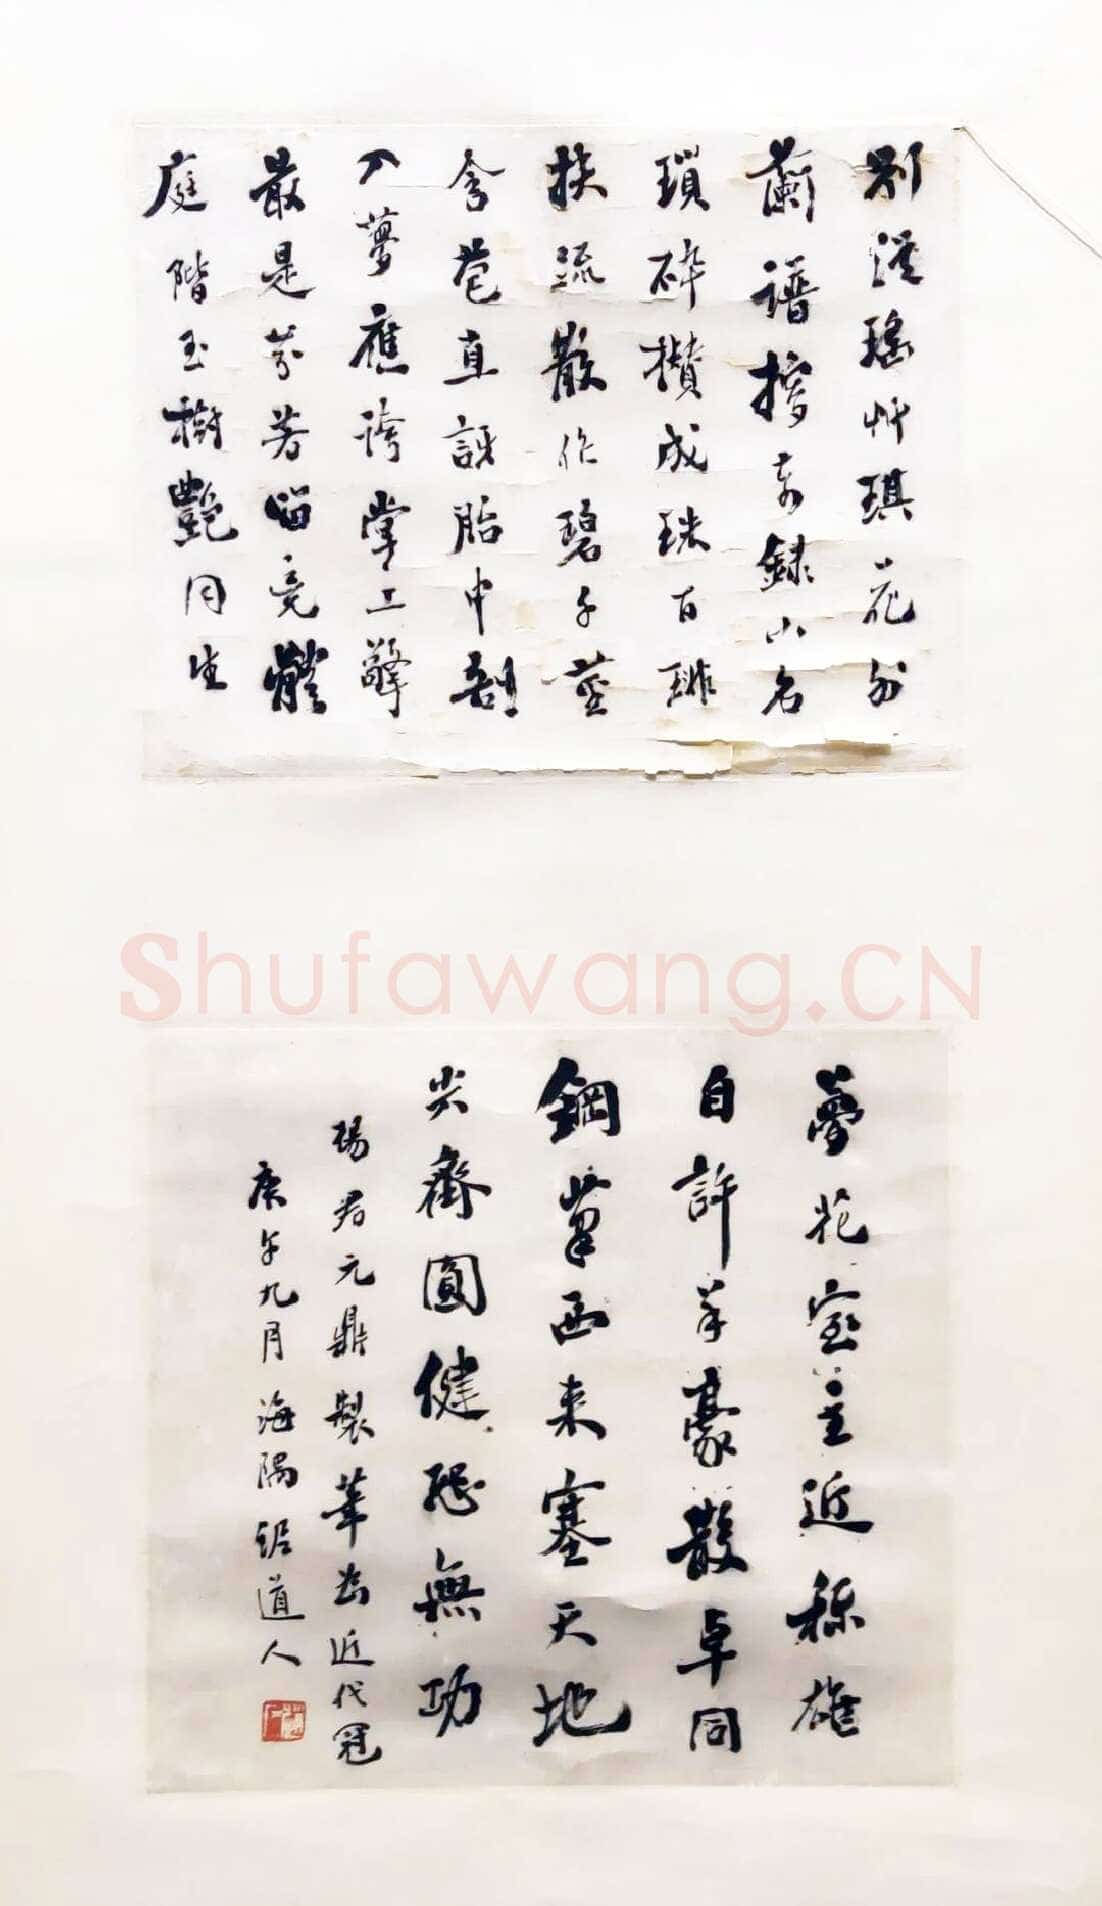 別從瑤艸琪花外
蘭譜搜奇錄小名
瑣碎攢成珠百琲
扶疏散作碧千莖
含苞直訝胎中剖
入夢應誇掌上擎
最是芬芳留竟體
庭階玉樹豔同生
Shufawang.CN
夢花室主近稱雄
自許羊豪散卓同
鋼筆西來塞天地
尖齊圓健恐無功
楊君元鼎製筆為近代冠
庚午九月海隅 道人